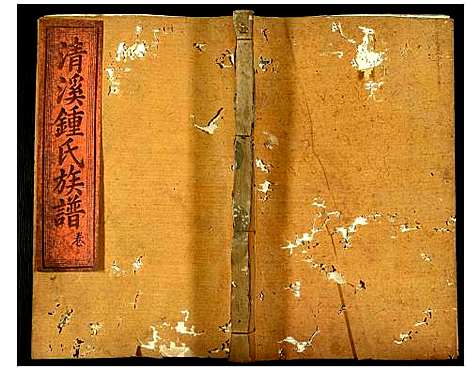 清溪鍾氏族譜
卷